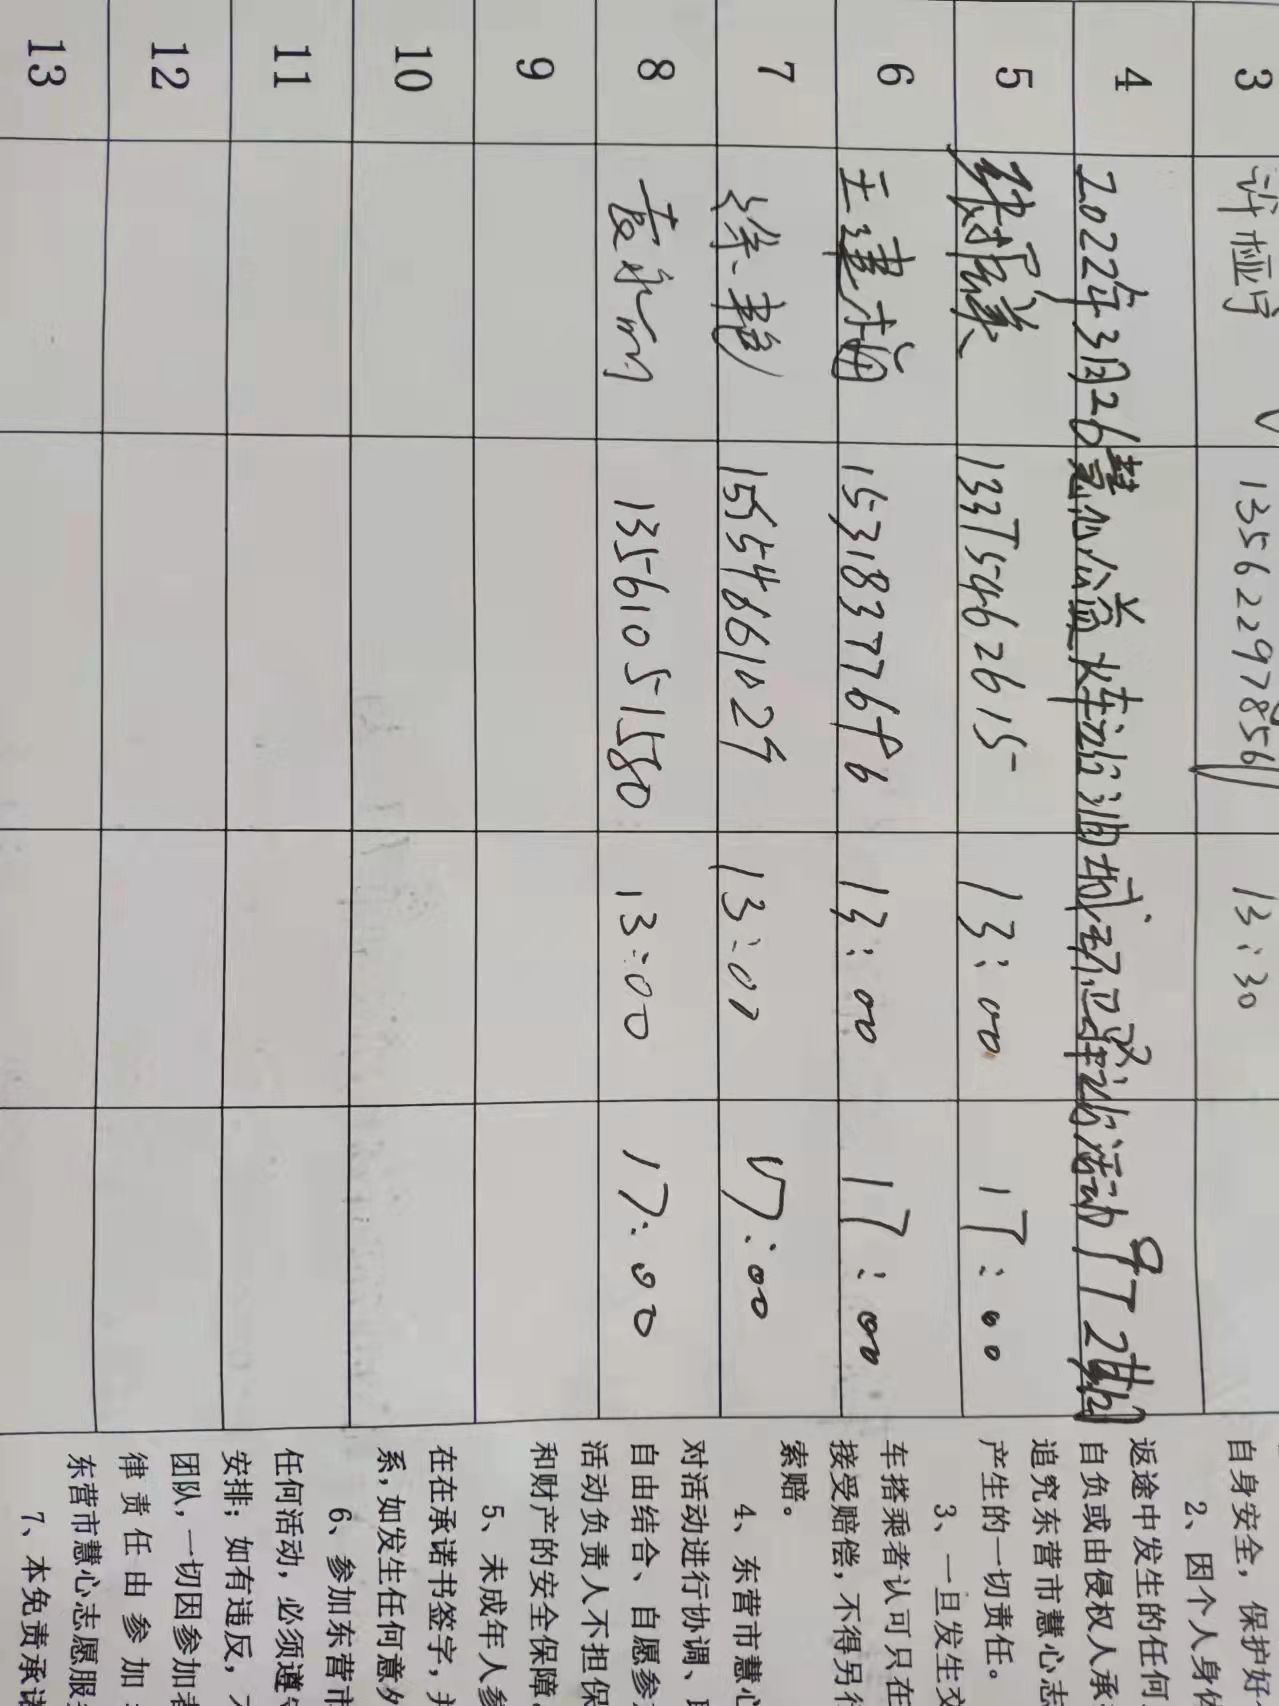 3 许桠宇 13562297856 13:30
4 2022年3月26慧心公益 油城 活动
5 13375462615 13:00 17:00
6 王建梅 13:00 17:00
7 徐艳 13:00 17:00
8 袁永 13561051580 13:00 17:00
9
10
11
12
13
自身安全，保护好
2、因个人身
返途中发生的任何
自负或由侵权人承
追究东营市慧心志
产生的一切责任。
3、一旦发生交
车搭乘者认可只在
接受赔偿，不得另行
索赔。
4、东营市慧心
对活动进行协调、
自由结合、自愿参
活动负责人不担保
和财产的安全保障
5、未成年人参
在在承诺书签字，并
系，如发生任何意外
6、参加东营市
任何活动，必须遵
安排；如有违反，
团队，一切因参加
律责任由参加
东营市慧心志愿服
7、本免责承诺